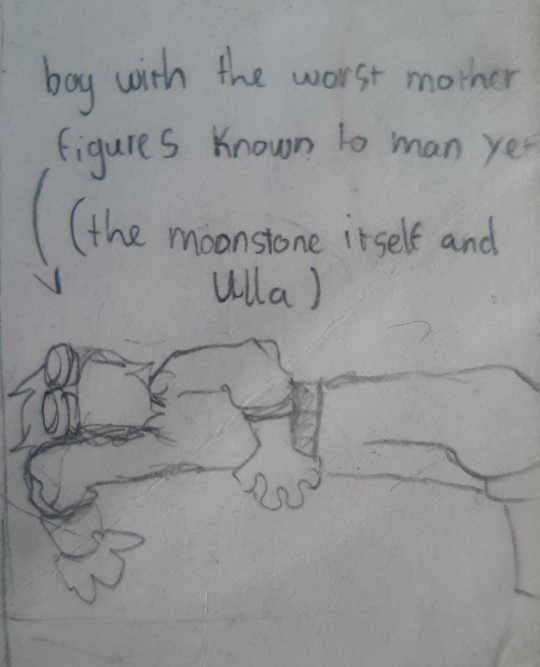 boy with the worst mother
figures known to man yet
(the moonstone itself and
Ulla)